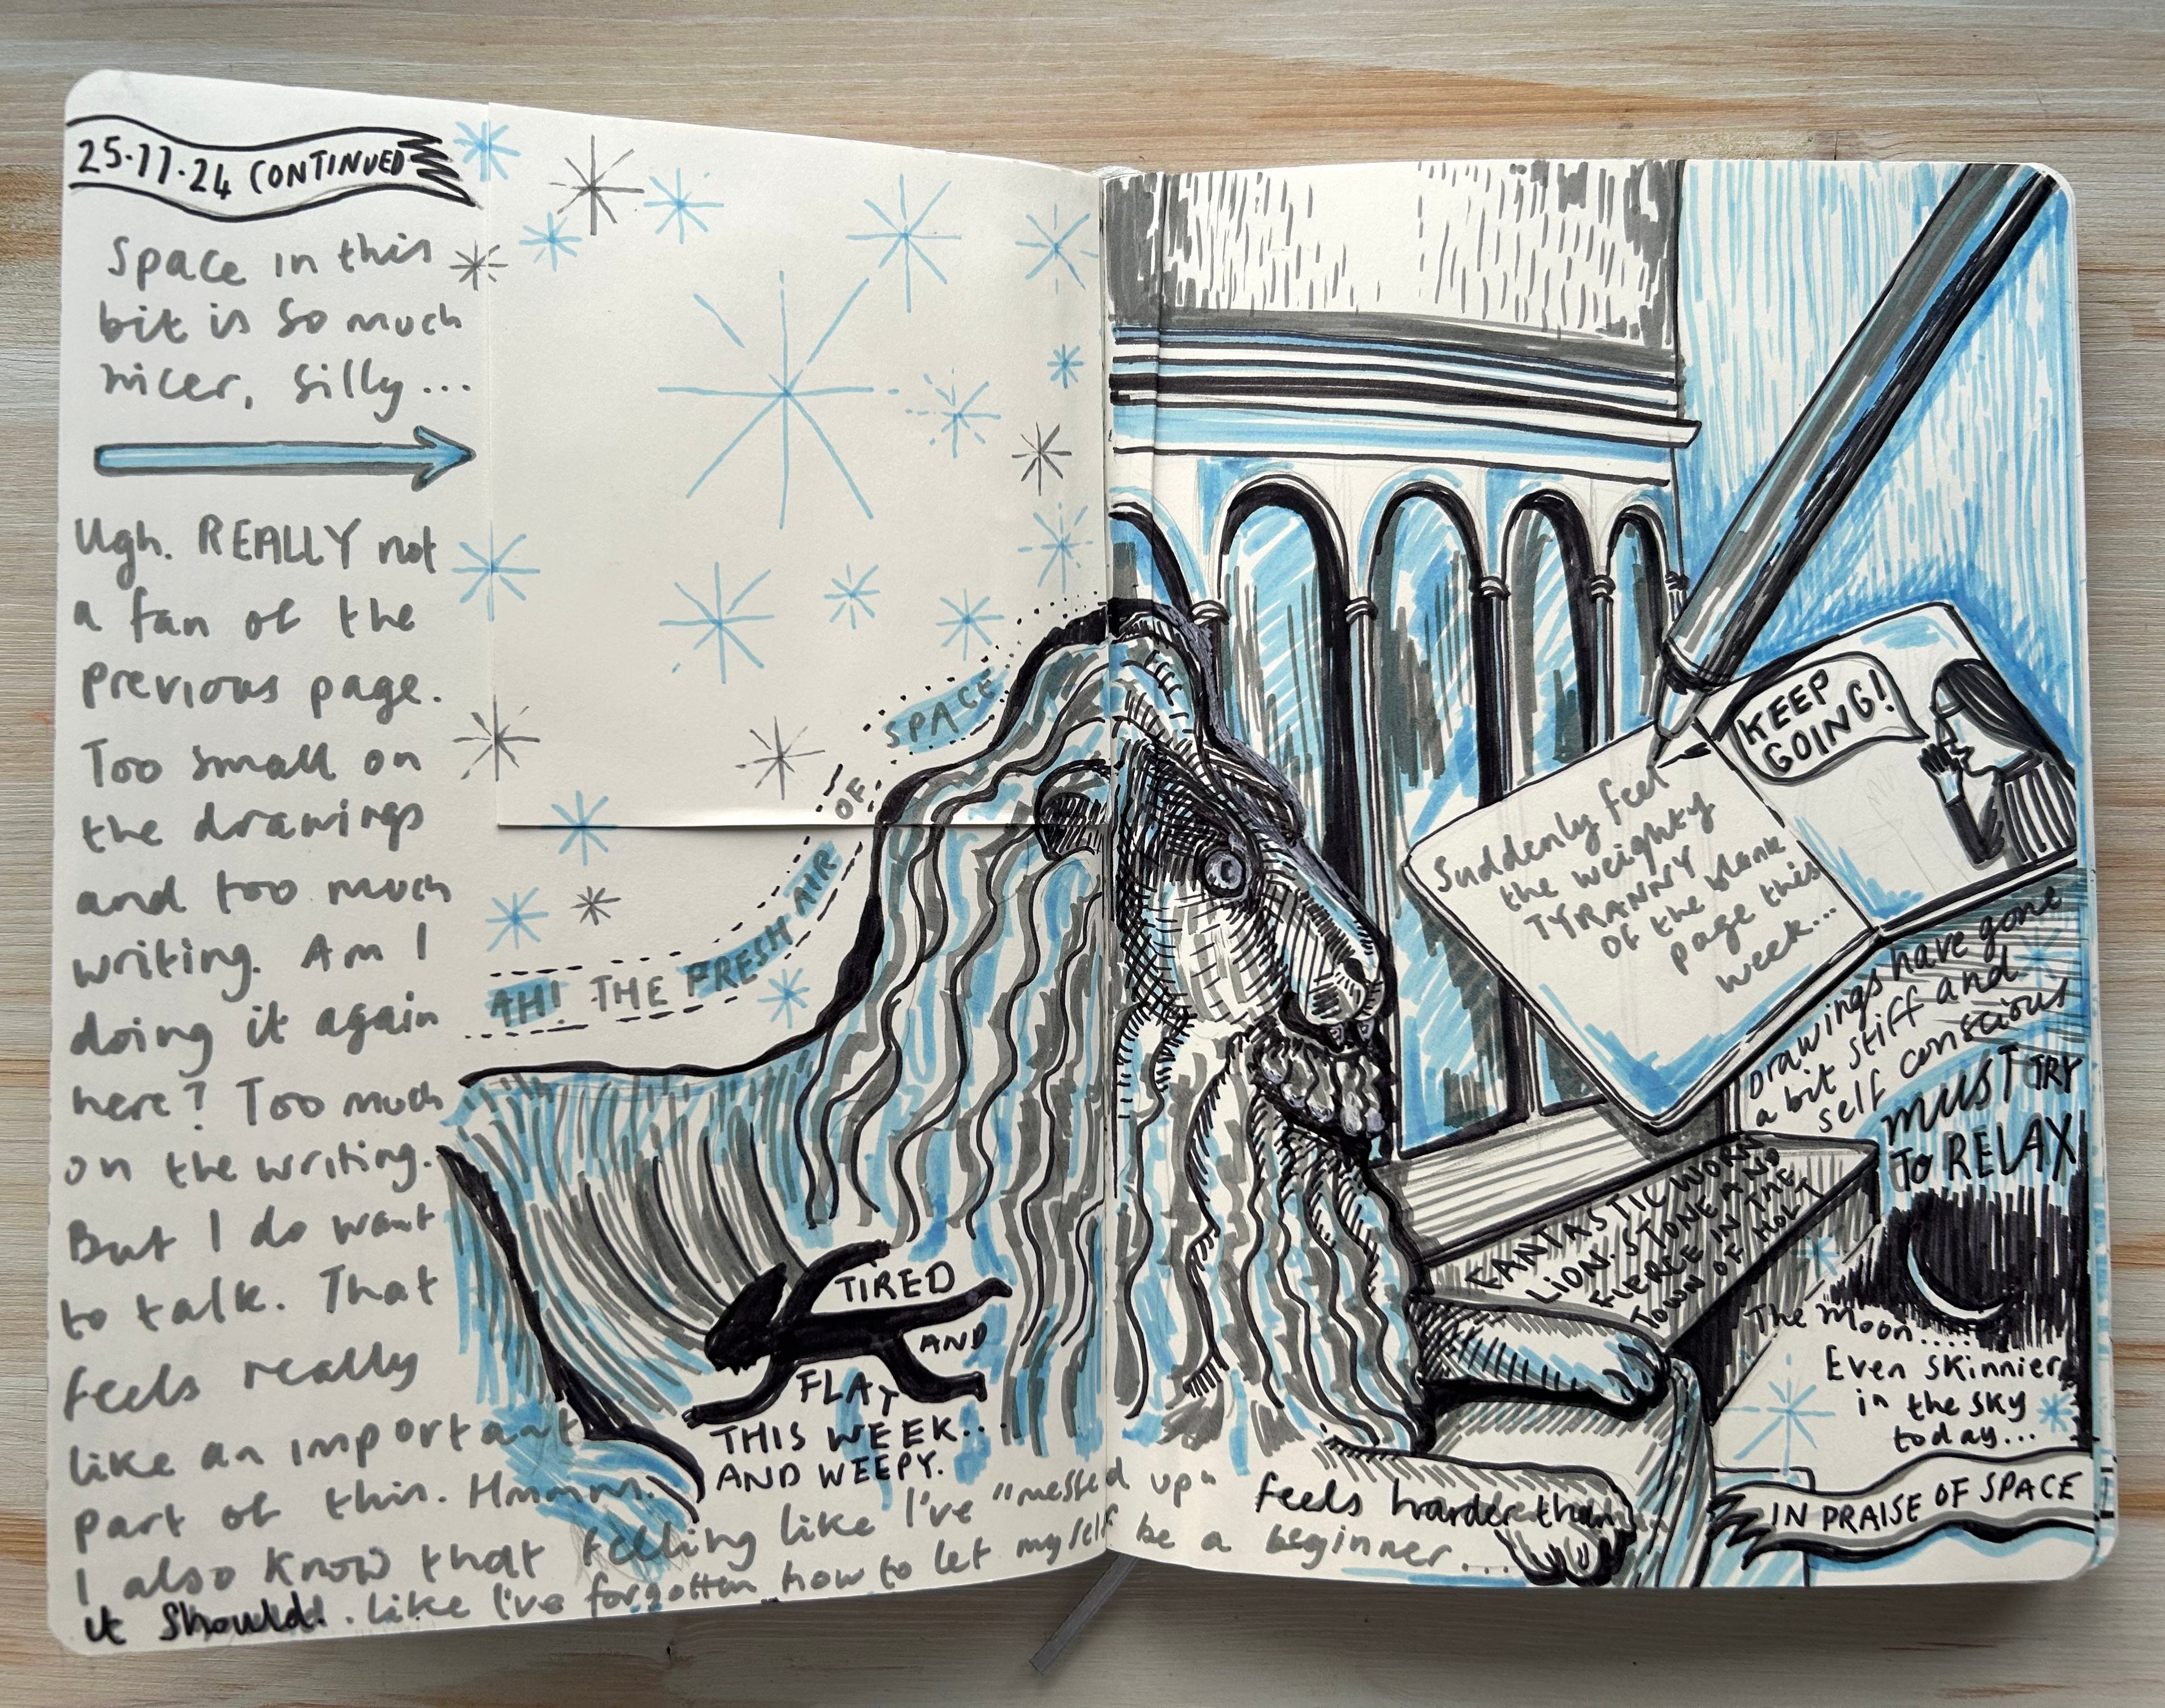 25·11·24 CONTINUED
Space in this
bit is so much
nicer, silly...
Ugh. REALLY not
a fan of the
previous page.
Too small on
the drawings
and too much
writing. Am I
doing it again
here? Too much
on the writing.
But I do want
to talk. That
feels really
like an important
part of this. Hmmm.
I also know that feeling like I've "messed up" feels harder than
it should. Like I've forgotten how to let myself be a beginner....
AH! THE FRESH AIR OF SPACE
TIRED
AND
FLAT
THIS WEEK...
AND WEEPY.
KEEP
GOING!
Suddenly feel
the weighty
TYRANNY
of the blank
page this
week...
Drawings have gone
a bit stiff and
self conscious
MUST TRY
TO RELAX
FANTASTIC WORN
LION. STONE AND
FIERCE IN THE
TOWN OF HOLT
The moon....
Even skinnier
in the sky
today...
IN PRAISE OF SPACE